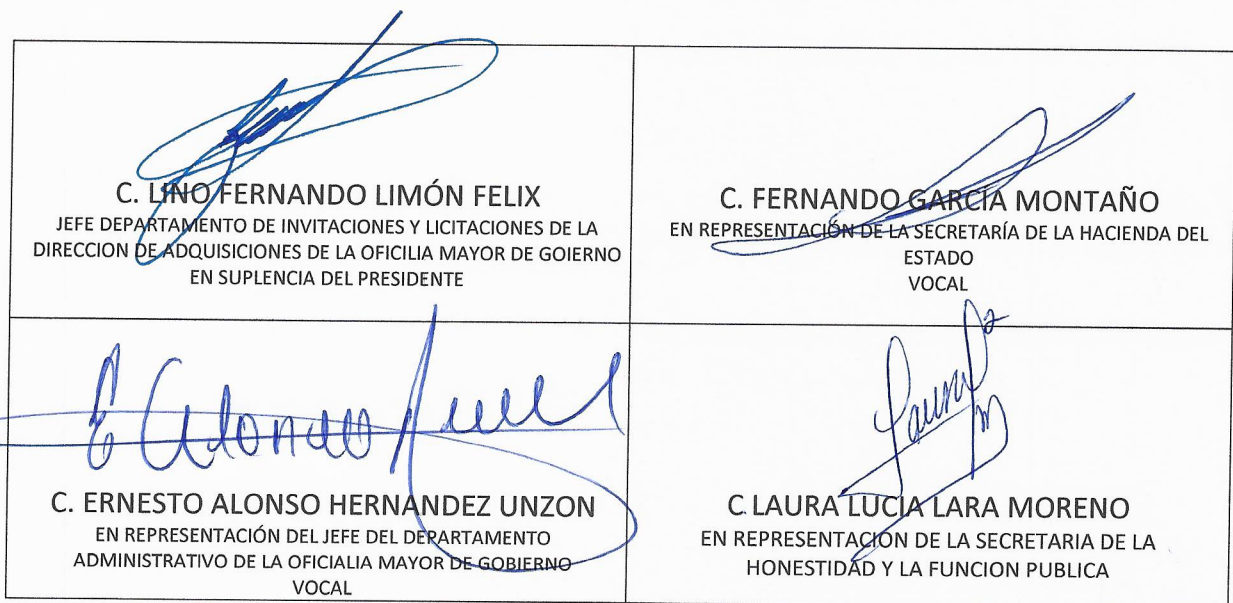 C. LINO FERNANDO LIMÓN FELIX
JEFE DEPARTAMENTO DE INVITACIONES Y LICITACIONES DE LA
DIRECCION DE ADQUISICIONES DE LA OFICILIA MAYOR DE GOIERNO
EN SUPLENCIA DEL PRESIDENTE
C. FERNANDO GARCÍA MONTAÑO
EN REPRESENTACIÓN DE LA SECRETARÍA DE LA HACIENDA DEL
ESTADO
VOCAL
C. ERNESTO ALONSO HERNANDEZ UNZON
EN REPRESENTACIÓN DEL JEFE DEL DEPARTAMENTO
ADMINISTRATIVO DE LA OFICIALIA MAYOR DE GOBIERNO
VOCAL
C LAURA LUCIA LARA MORENO
EN REPRESENTACION DE LA SECRETARIA DE LA
HONESTIDAD Y LA FUNCION PUBLICA